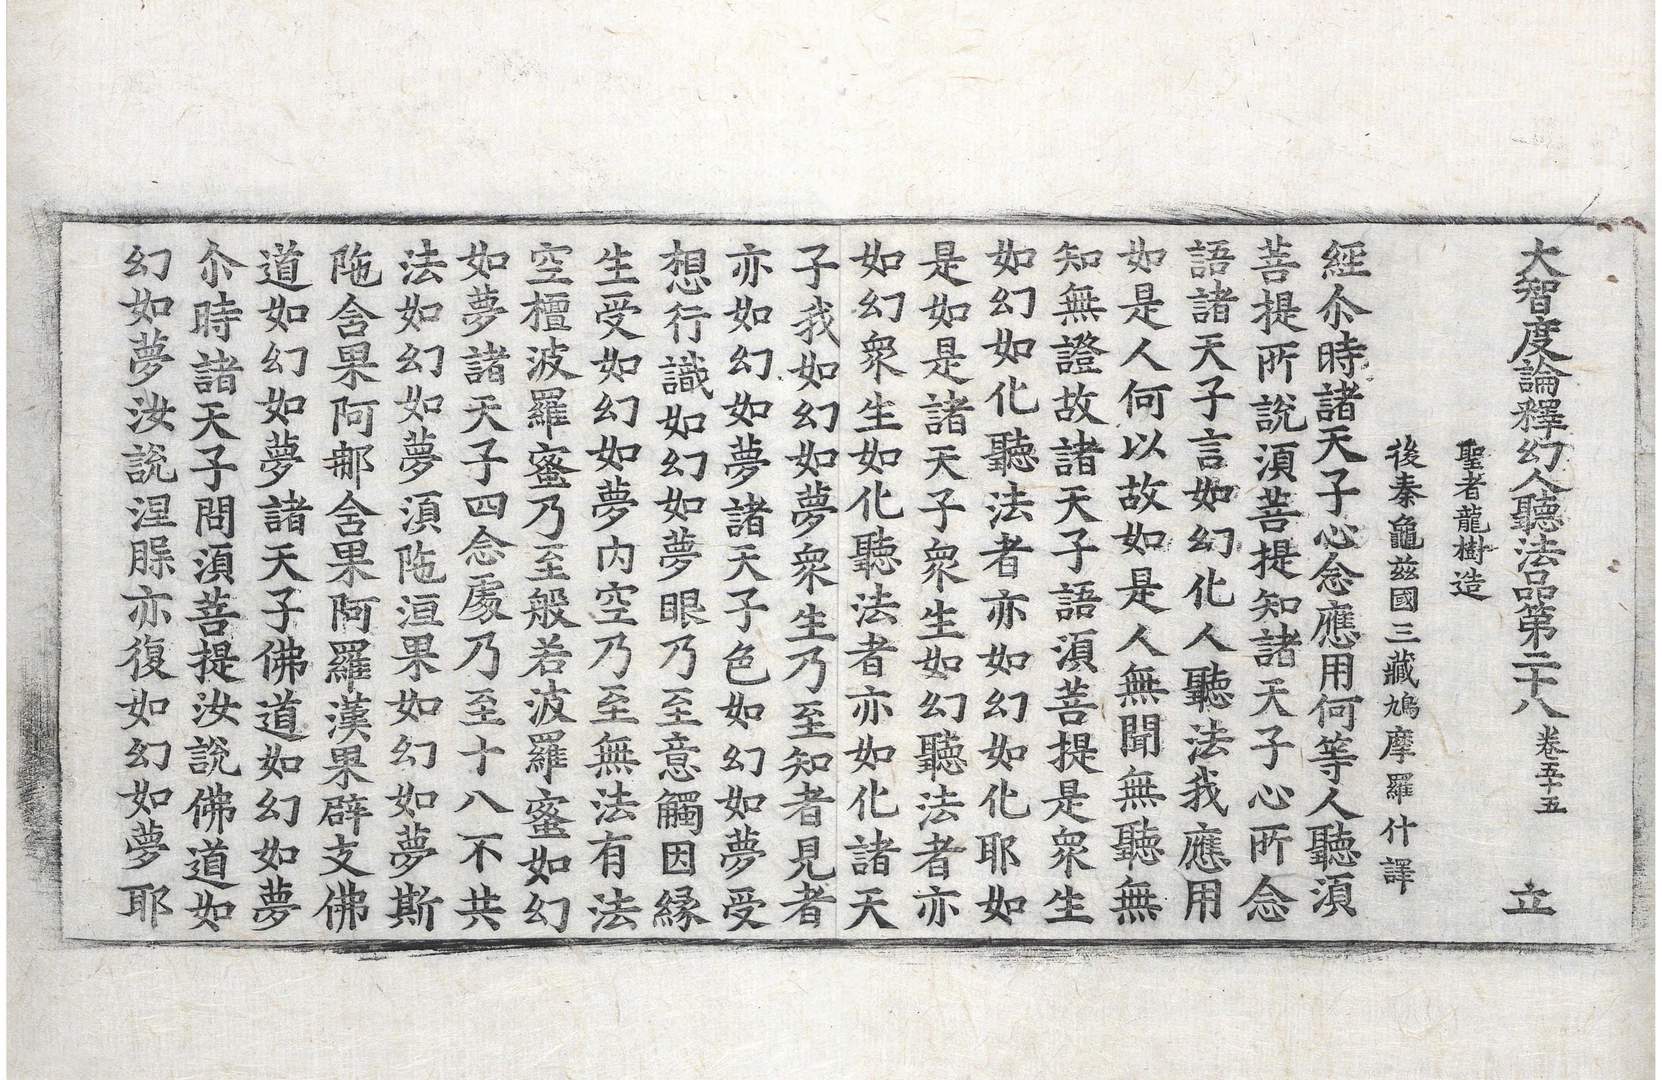 大智度論釋幻人聽法品第二十八 卷五十五 立
聖者龍樹造
後秦龜兹國三藏鳩摩羅什譯
經尒時諸天子心念應用何等人聽湏
菩提所說湏菩提知諸天子心所念
語諸天子言如幻化人聽法我應用
如是人何以故如是人無聞無聽無
知無證故諸天子語湏菩提是衆生
如幻如化聽法者亦如幻如化耶如
是如是諸天子衆生如幻聽法者亦
如幻衆生如化聽法者亦如化諸天
子我如幻如夢衆生乃至知者見者
亦如幻如夢諸天子色如幻如夢受
想行識如幻如夢眼乃至意觸因縁
生受如幻如夢内空乃至無法有法
空檀波羅蜜乃至般若波羅蜜如幻
如夢諸天子四念處乃至十八不共
法如幻如夢湏陁洹果如幻如夢斯
陁含果阿那含果阿羅漢果辟支佛
道如幻如夢諸天子佛道如幻如夢
尒時諸天子問湏菩提汝說佛道如
幻如夢汝說涅槃亦復如幻如夢耶